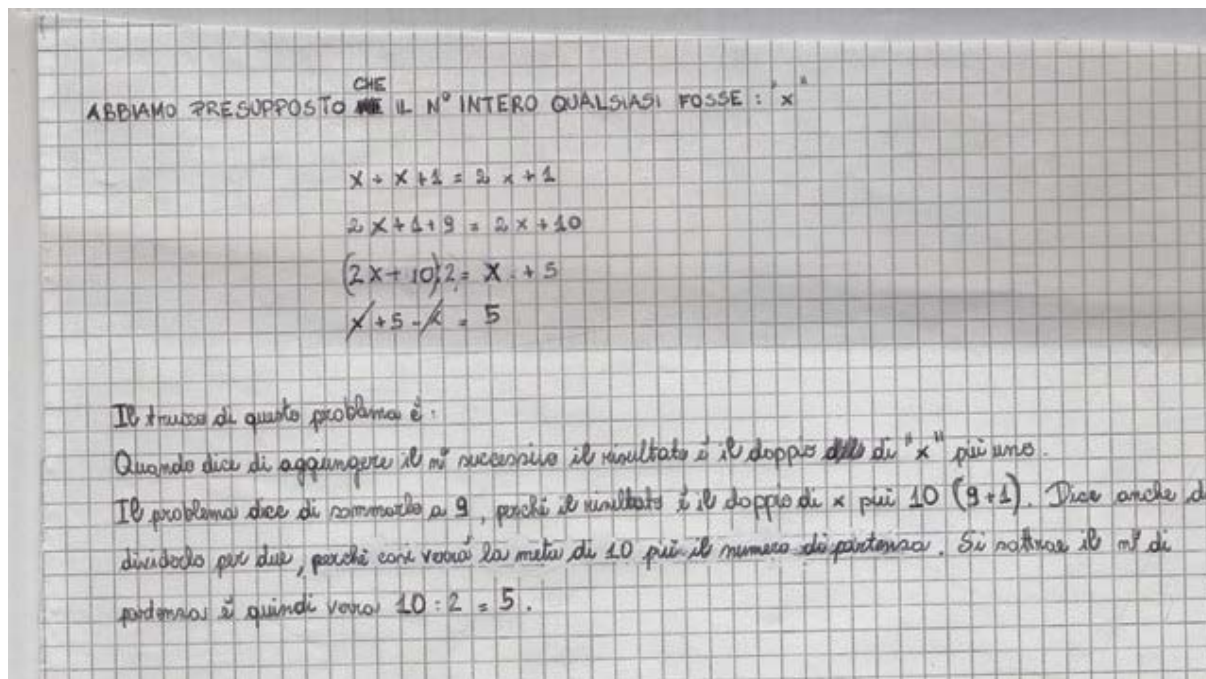 ABBIAMO PRESUPPOSTO CHE IL N° INTERO QUALSIASI FOSSE : "x"
x + x + 1 = 2x + 1
2x + 1 + 9 = 2x + 10
(2x + 10):2 = x + 5
x + 5 - x = 5
Il trucco di questo problema è:
Quando dice di aggiungere il n° successivo il risultato è il doppio di "x" più uno.
Il problema dice di sommarlo a 9, perché il risultato è il doppio di x più 10 (9+1). Dice anche d
dividerlo per due, perché così verrà la metà di 10 più il numero di partenza. Si sottrae il n° di
partenza e quindi verrà 10 : 2 = 5.